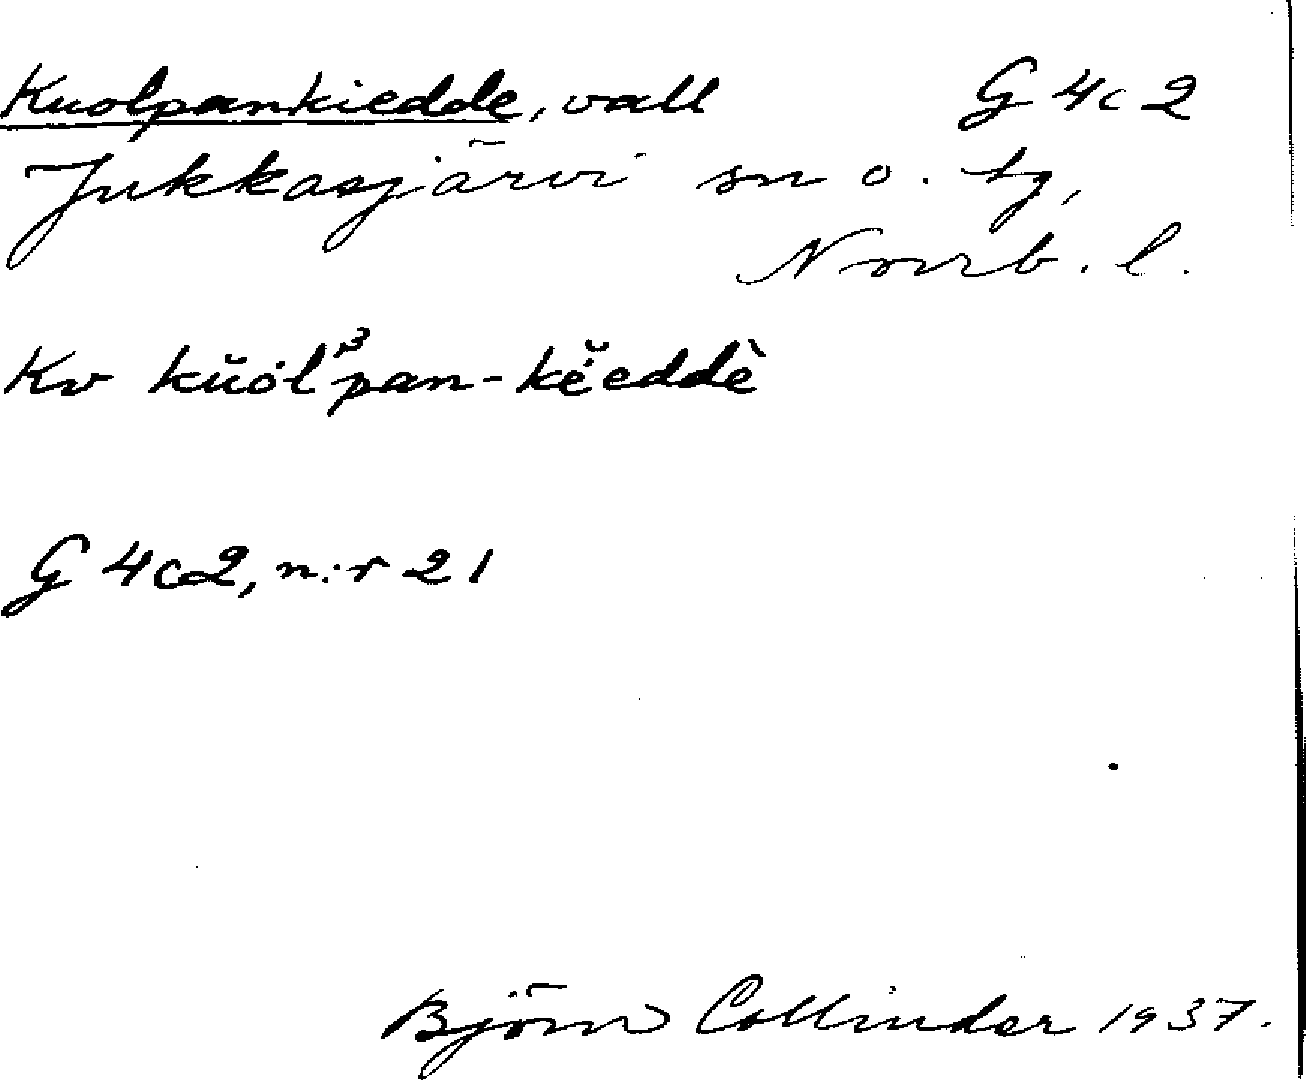 Kuolpankiedde, vall G 4c2
Jukkasjärvi sn o. tg,
Norrb. l.
Kv kŭo͔lᵝpan-kĕ̀eddè
G 4c2, n:r 21
Björn Collinder 1937.